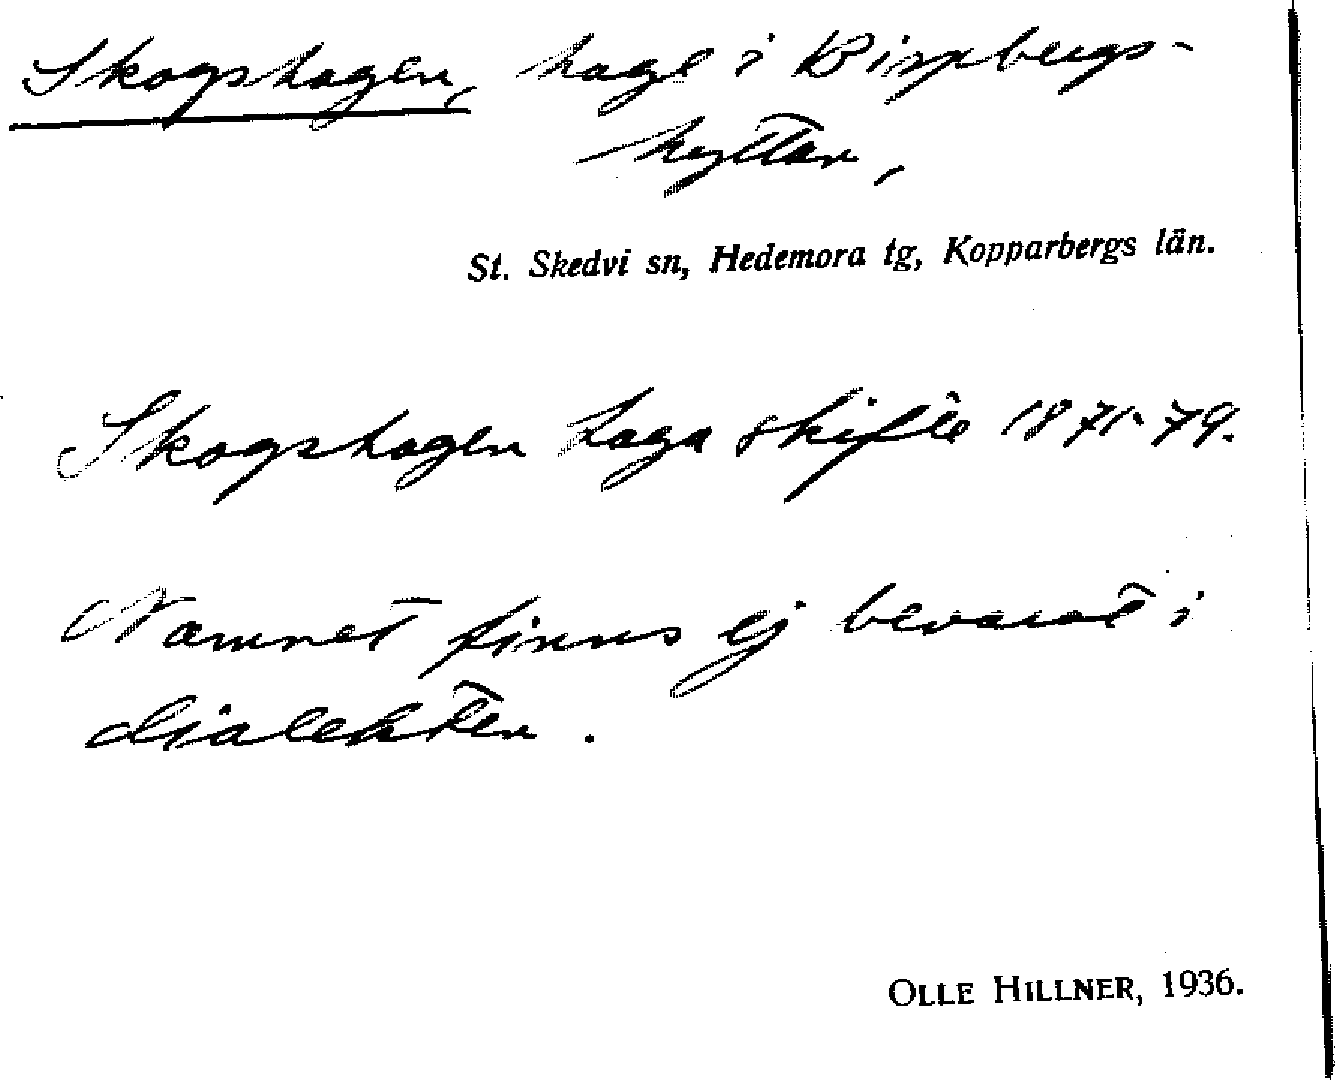 Skogshagen, hage i Bispbergs-
hyttan,
St. Skedvi sn, Hedemora tg, Kopparbergs län.
Skogshagen Laga skifte 1871-79.
Namnet finns ej bevarat i
dialekten.
OLLE HILLNER, 1936.